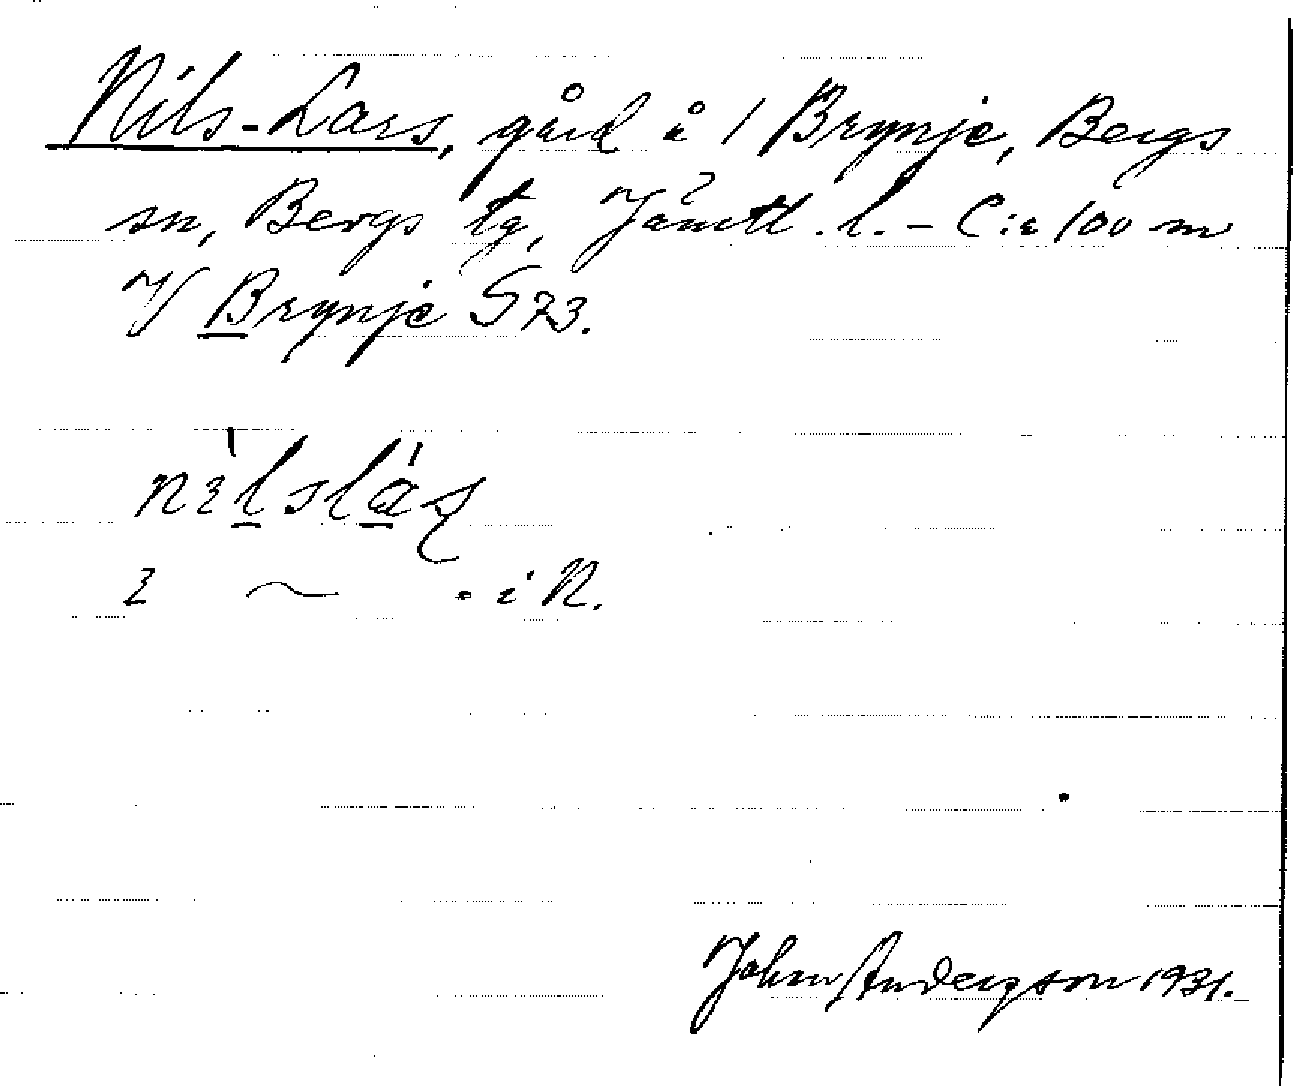 Nils-Lars, gård å 1 Brynje, Bergs
sn, Bergs tg, Jämtl. l. - C:a 100 m
V Brynje S 73.
i N.
John Anderson 1931.